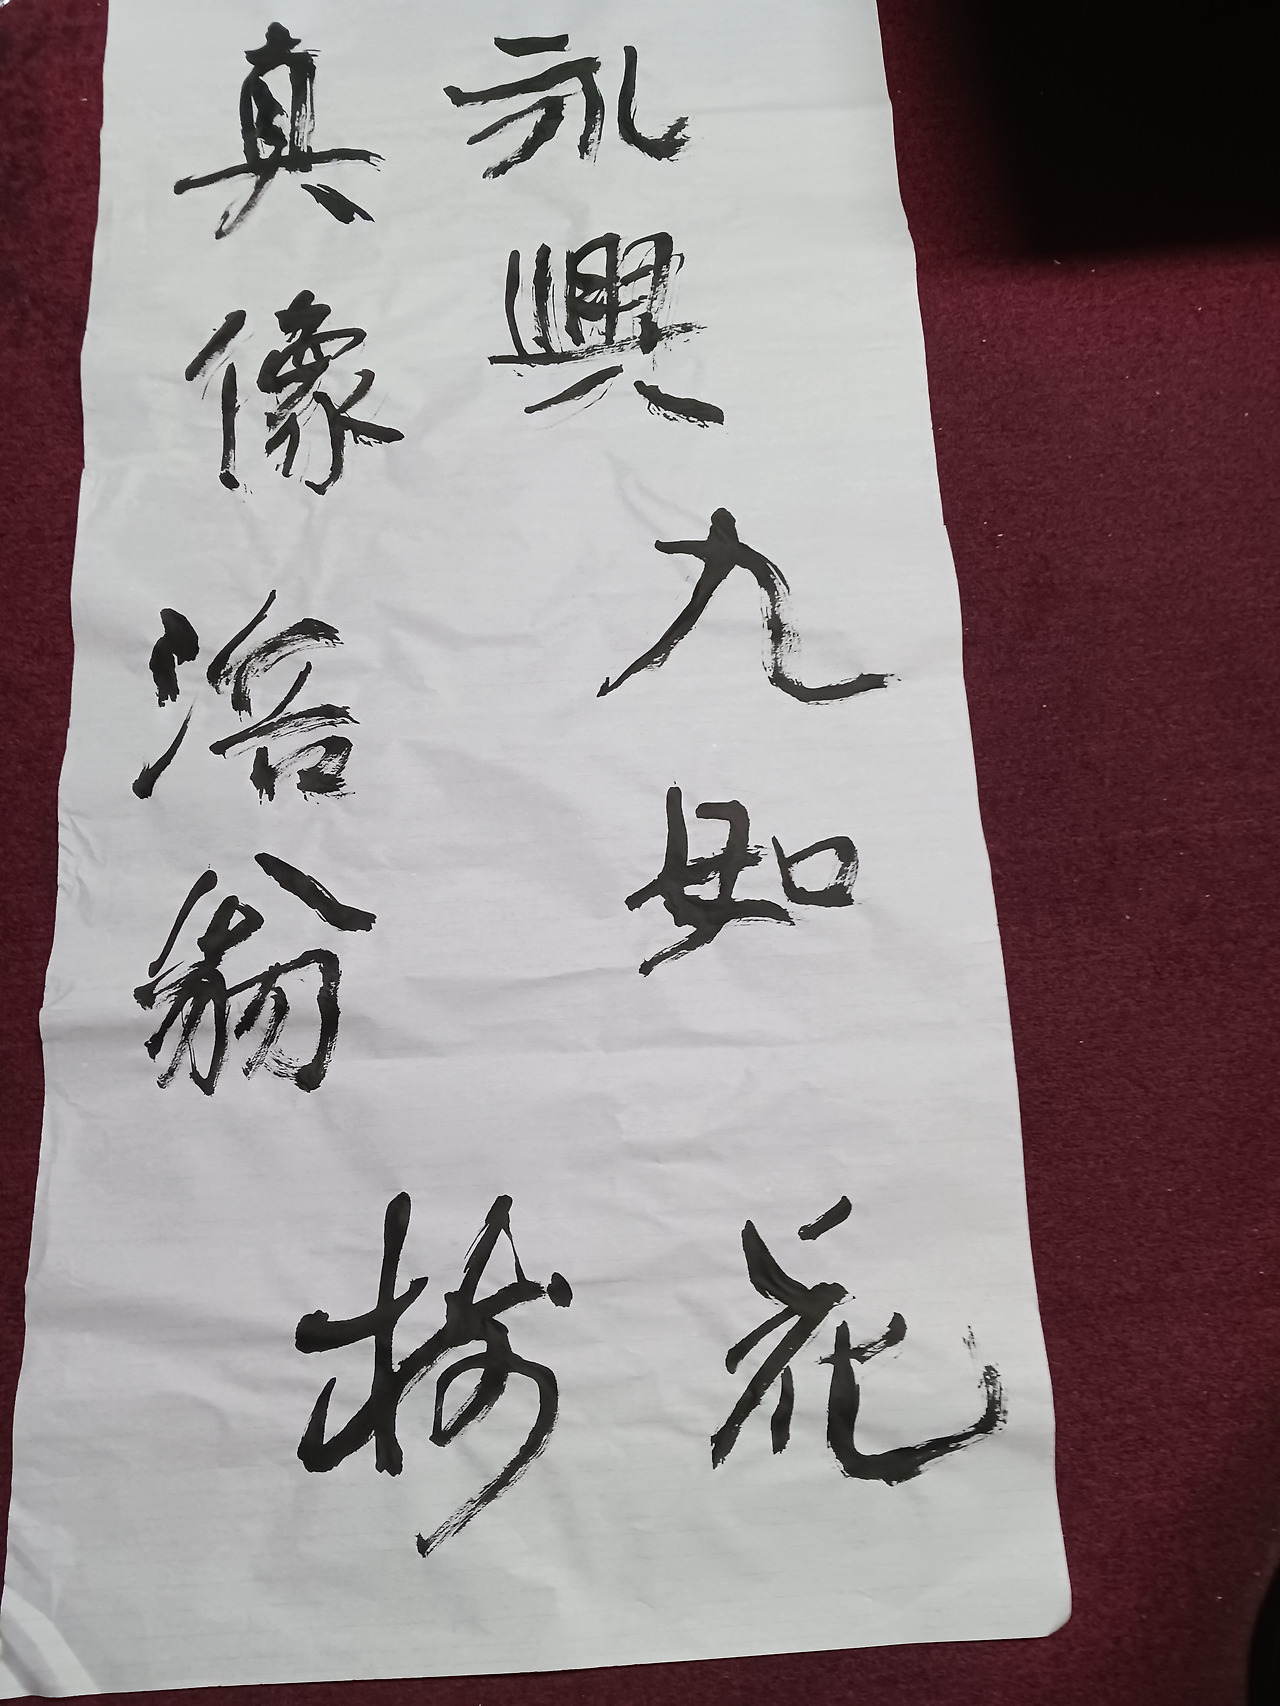 永興九如花
真像涪翁梅